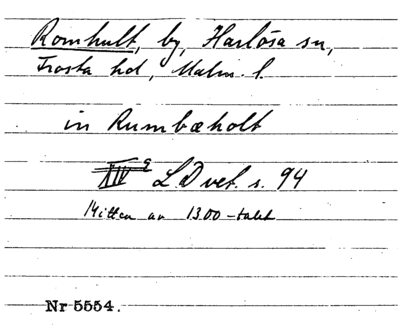 Romhult, by, Harlösa sn,
Frosta hd, Malm. l.
in Rumbæholt
L.D vet. s. 94
Mitten av 1300-talet
Nr 5554.